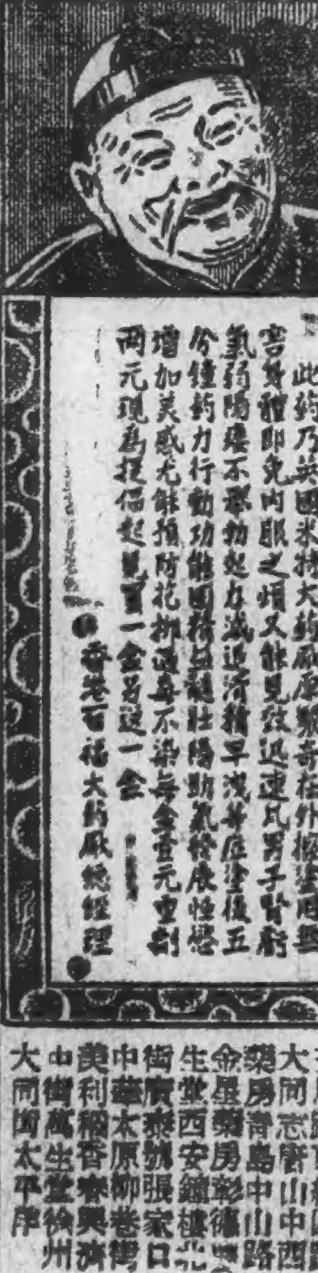 此药乃英國米特大药厰原製奇在外擦塗用無
害身體即免内服之煩又能見效迅速凡男子腎虧
氣弱陽痿不舉勃起力減退滑精早洩等症塗後五
分鐘药力行動功能固精益髓壯陽助氣發展性慾
增加美感尤能預防花柳過毒不染每盒壹元重劑
兩元現為提倡起見買一盒另送一盒
香港百福大药厰總經理
大同志唐山中西
藥房青島中山路
金星藥房彰德
生堂西安鐘樓北
街廣泰號張家口
中華太原柳巷街
美利 香春興濟
中街萬生堂徐州
大同 太平洋